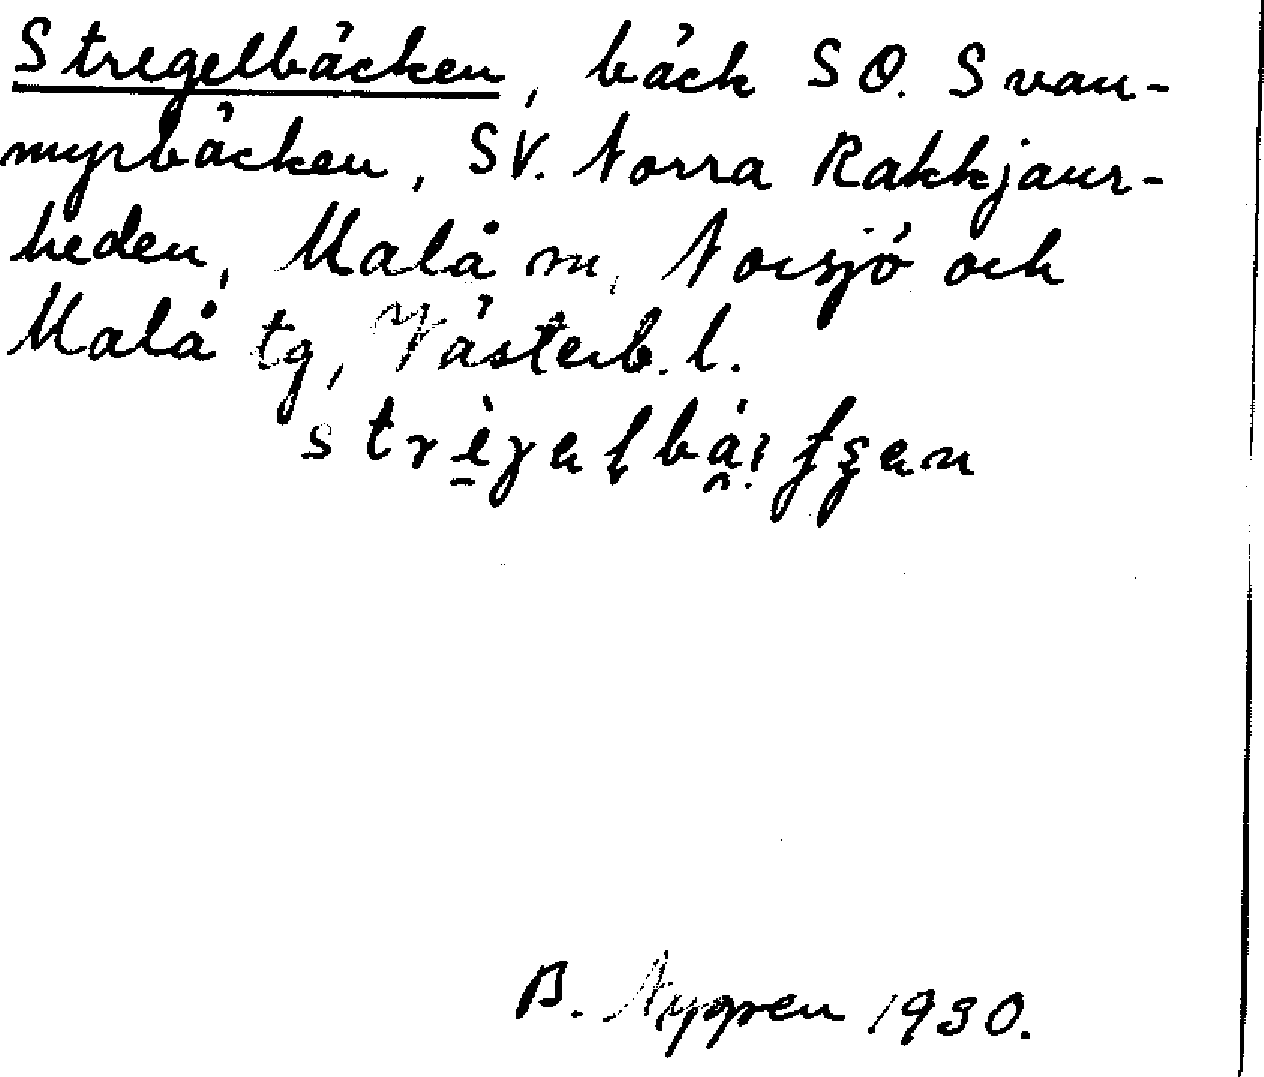 Stregelbäcken, bäck SO. Svan-
myrbäcken, SV. Norra Rakkjaur-
heden, Malå sn, Norsjö och
Malå tg, Västerb. l.
B. Nygren 1930.